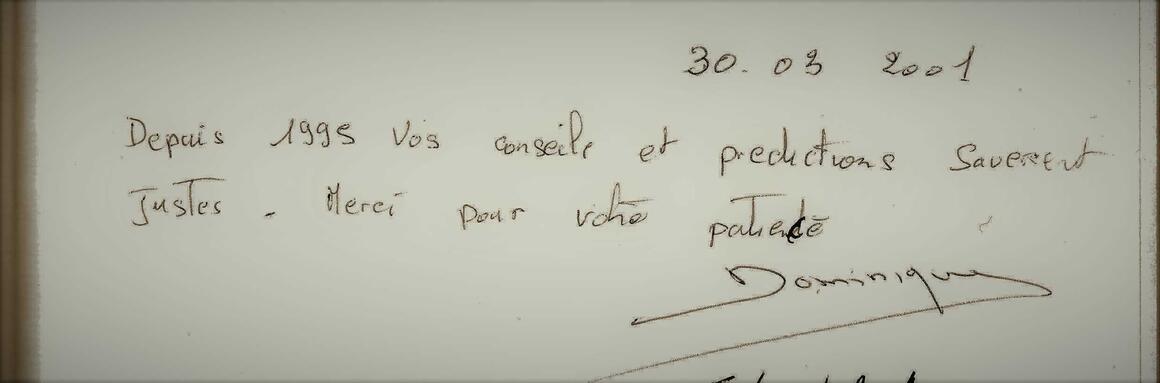 30. 03 2001
Depuis 1995 Vos conseils et predictions Saverent
Justes - Merci pour votre patience
Dominique